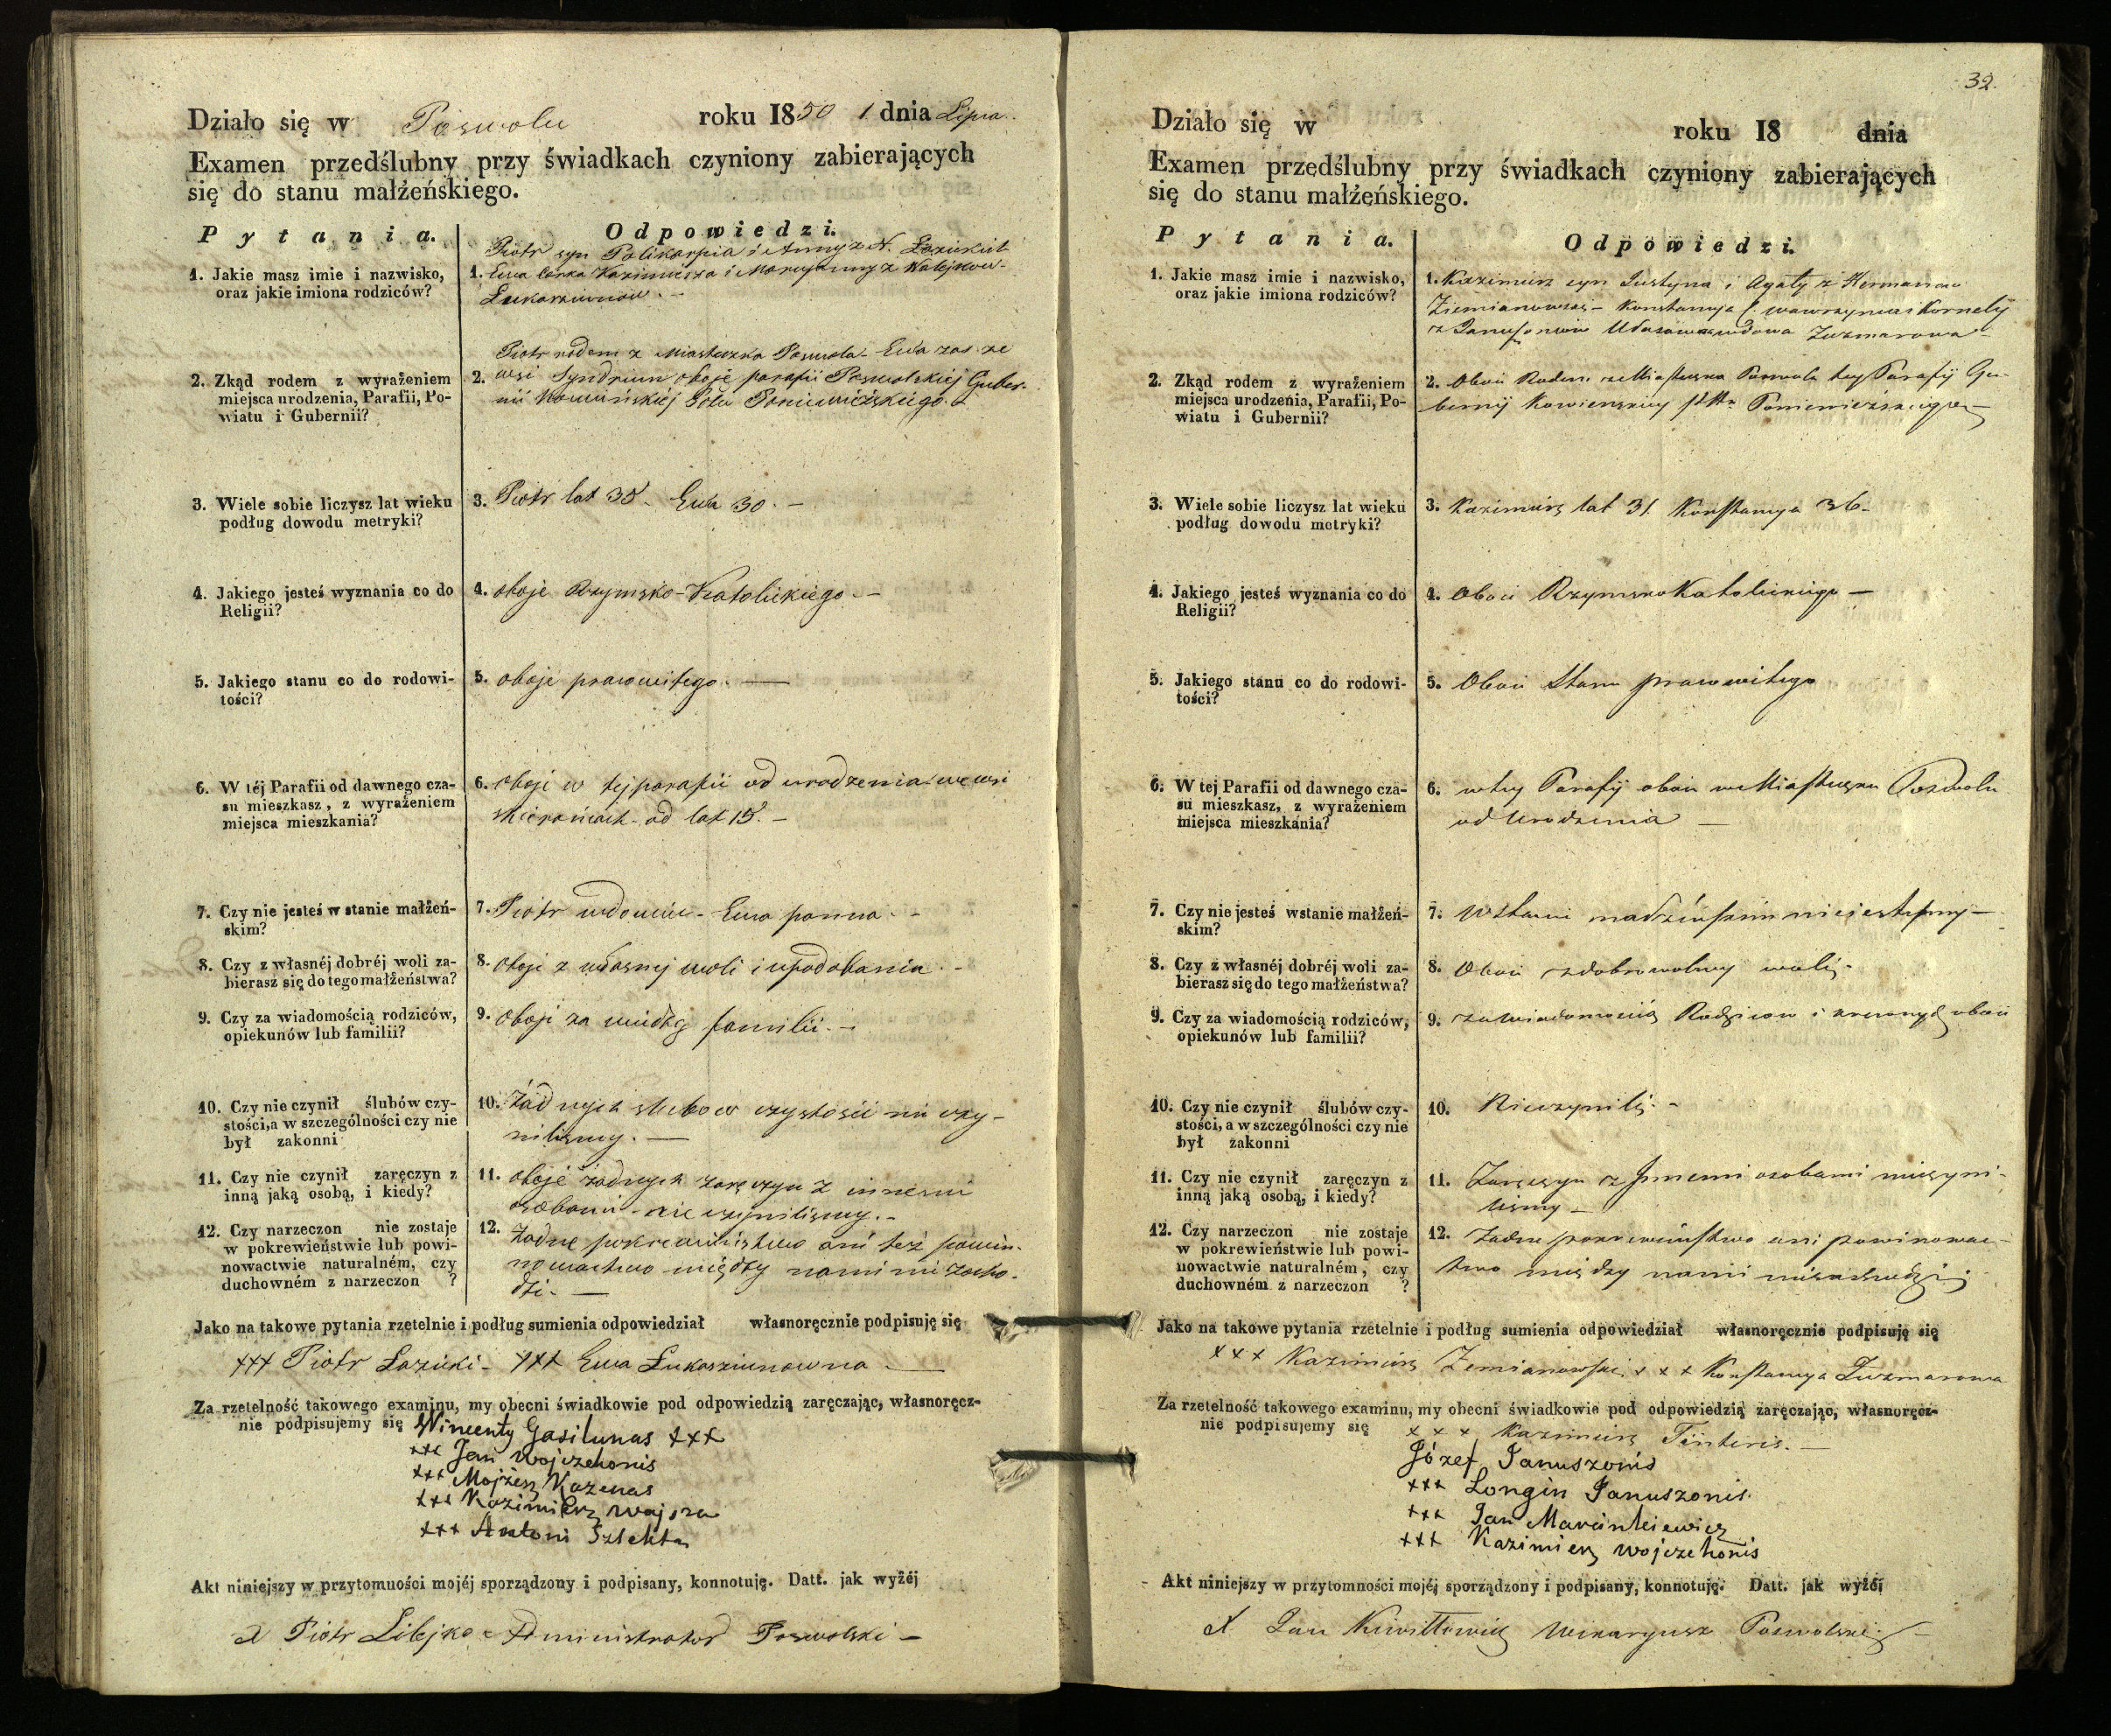 Działo się w Poswolu roku 1850 1 dnia Lipca.
Examen przedślubny przy świadkach czyniony zabierających
się do stanu małżeńskiego.
Pytania. Odpowiedzi.
1. Jakie masz imie i nazwisko,
oraz jakie imiona rodziców?
Piotr syn Polikarpia i Anny z N.
1. Ewa Corka Kazimierza i Maryanny z
2. Zkąd rodem z wyrażeniem
miejsca urodzenia, Parafii, Po-
wiatu i Gubernii?
Piotr rodem z Miasteczka Poswola - Ewa zas ze
2. wsi oboje parafii Poswolskiej Guber.
nii Kowieńskiej Pttu Poniewieżskiego.
3. Wiele sobie liczysz lat wieku
podług dowodu metryki?
3. Piotr lat 35 - Ewa 30. -
4. Jakiego jesteś wyznania co do
Religii?
4. oboje Rzymsko-Katolickiego. -
5. Jakiego stanu co do rodowi-
tości?
5. oboje prawowitego. -
6. W téj Parafii od dawnego cza-
su mieszkasz, z wyrażeniem
miejsca mieszkania?
6. oboje w tej parafii od urodzenia we wsi
od lat 15. -
7. Czy nie jesteś w stanie małżeń-
skim?
7. Piotr wdowiec - Ewa panna. -
8. Czy z własnéj dobréj woli za-
bierasz się do tego małżeństwa?
8. Oboje z własnej woli i upodobania. -
9. Czy za wiadomością rodziców,
opiekunów lub familii?
9. Oboje za familii. -
10. Czy nie czynił ślubów czy-
stości, a w szczególności czy nie
był zakonni
10. Żadnych slubow czystości nie czy-
niliśmy. -
11. Czy nie czynił zaręczyn z
inną jaką osobą, i kiedy?
11. oboje żadnych zaręczyn z innemi
osobami - nie czyniliśmy. -
12. Czy narzeczon nie zostaje
w pokrewieństwie lub powi-
nowactwie naturalném, czy
duchowném z narzeczon ?
12. Żadne pokrewieństwo ani też powin-
nowactwo między nami nie zacho-
dzi. -
Jako na takowe pytania rzetelnie i podług sumienia odpowiedział własnoręcznie podpisuję się
+++ Piotr Łazicki - +++ Ewa Łukasziunowna -
Za rzetelność takowego examinu, my obecni świadkowie pod odpowiedzią zaręczając, własnoręcz-
nie podpisujemy się Wincenty Gasilunas +++
+++ Jan Wojczehonis
+++ Mojżesz Kazenas
+++ Kazimierz
+++ Antoni Szlekta
Akt niniejszy w przytomności mojéj sporządzony i podpisany, konnotuję. Datt. jak wyżéj
X Piotr Libejko Administrator Poswolski -
32.
Działo się w roku 18 dnia
Examen przedślubny przy świadkach czyniony zabierających
się do stanu małżeńskiego.
Pytania. Odpowiedzi.
1. Jakie masz imie i nazwisko,
oraz jakie imiona rodziców?
1. Kazimierz syn Justyna i Agaty z
Ziemianowski - Konstancya c. Wawrzynca i Kornely
z wdowa Zuzmarowa -
2. Zkąd rodem z wyrażeniem
miejsca urodzenia, Parafii, Po-
wiatu i Gubernii?
2. Oboie Rodem z Miasteczka Poswola tey Parafij Gu-
bernij Kowienskiey Pttu Poniewiezskiego -
3. Wiele sobie liczysz lat wieku
podług dowodu metryki?
3. Kazimierz lat 31 Konstancya 36 -
4. Jakiego jesteś wyznania co do
Religii?
4. Oboie Rzymsko Katolickiego -
5. Jakiego stanu co do rodowi-
tości?
5. Oboie Stanu prawowitego
6. W tej Parafii od dawnego cza-
su mieszkasz, z wyrażeniem
miejsca mieszkania?
6. w tey Parafij oboie w Miasteczku Poswolu
od Urodzenia -
7. Czy nie jesteś wstanie małżeń-
skim?
7. W Stanie nie jestesmy -
8. Czy z własnéj dobréj woli za-
bierasz się do tego małżeństwa?
8. Oboie z dobrowolney woli. -
9. Czy za wiadomością rodziców,
opiekunów lub familii?
9. za wiadomością Rodzicow i krewnych oboie
10. Czy nie czynił ślubów czy-
stości, a w szczególności czy nie
był zakonni
10. Nieczynili. -
11. Czy nie czynił zaręczyn z
inną jaką osobą, i kiedy?
11. Zaręczyn z Jnnemi osobami nieczyni-
lismy -
12. Czy narzeczon nie zostaje
w pokrewieństwie lub powi-
nowactwie naturalném, czy
duchowném z narzeczon ?
12. Żadne pokrewieństwo ani powinowac-
two między nami niezachodzi
Jako na takowe pytania rzetelnie i podług sumienia odpowiedział własnoręcznie podpisuję się
+++ Kazimierz Zemianowski +++ Konstancya Zuzmarowa
Za rzetelność takowego examinu, my obecni świadkowie pod odpowiedzią zaręczając, własnoręcz-
nie podpisujemy się +++ Kazimierz Tinteris. -
Józef Januszonis
+++ Longin Januszonis
+++ Jan Marcinkiewicz
+++ Kazimierz Wojczehonis
Akt niniejszy w przytomności mojéj sporządzony i podpisany, konnotuję. Datt. jak wyżéj
X Jan Wikaryusz Poswolski -